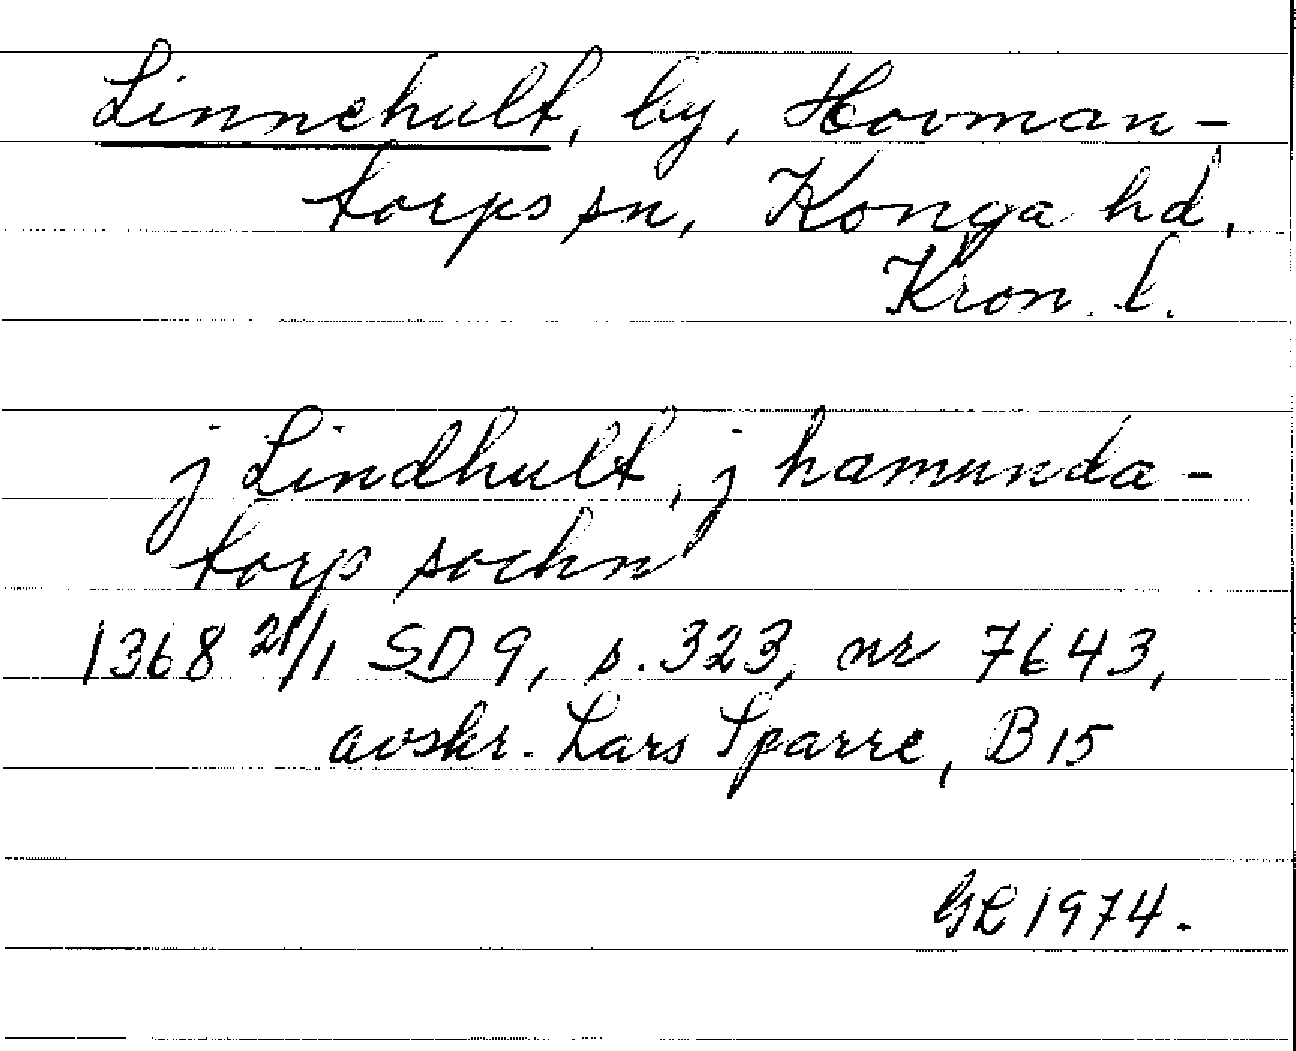 Linnehult, by, Hovman-
torps sn, Konga hd,
Kron. l.
j Lindhult, j hamunda-
torp sochn
1368 21/1 SD 9, s. 323, nr 7643,
avskr. Lars Sparre, B 15
GL 1974.